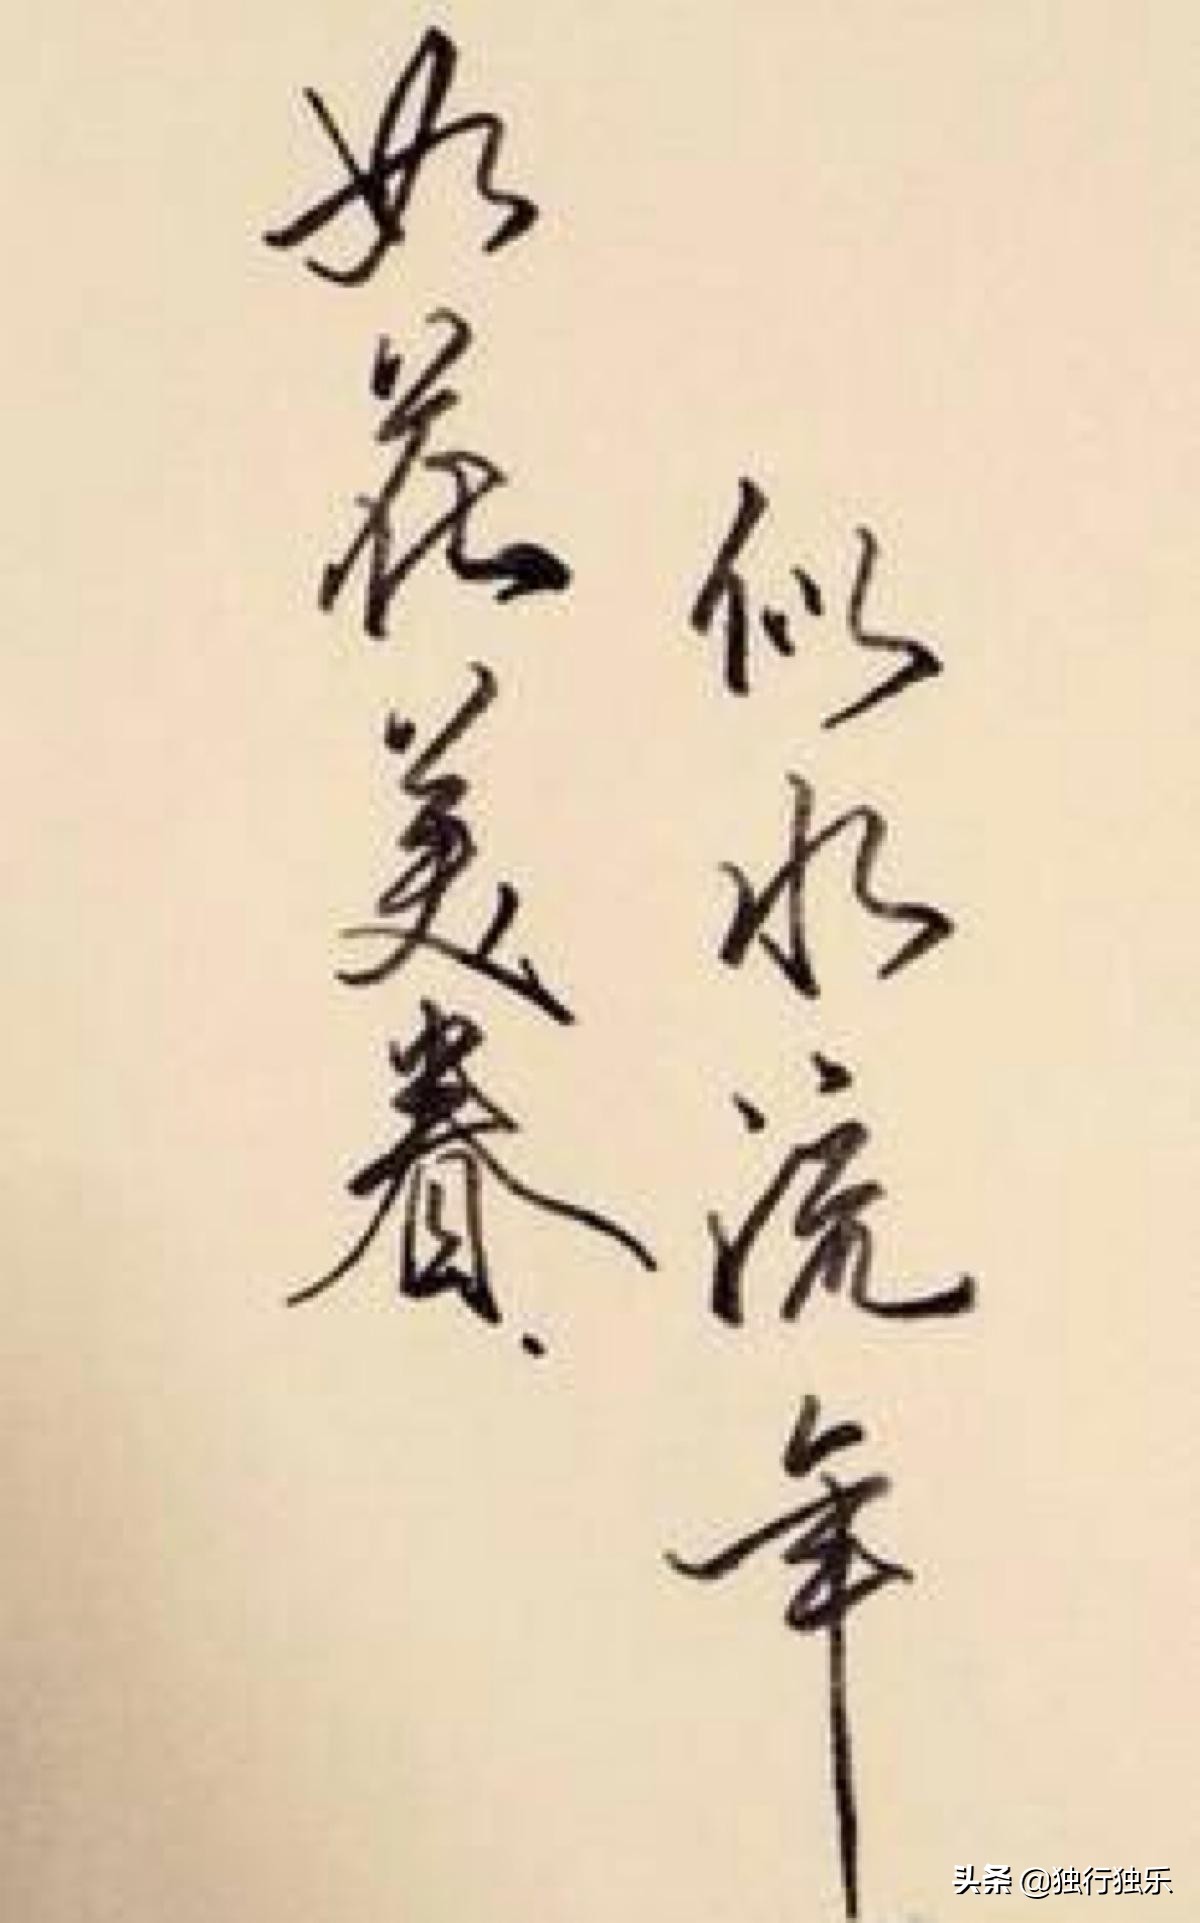 如花美眷.
似水流年
头条 @独行独乐